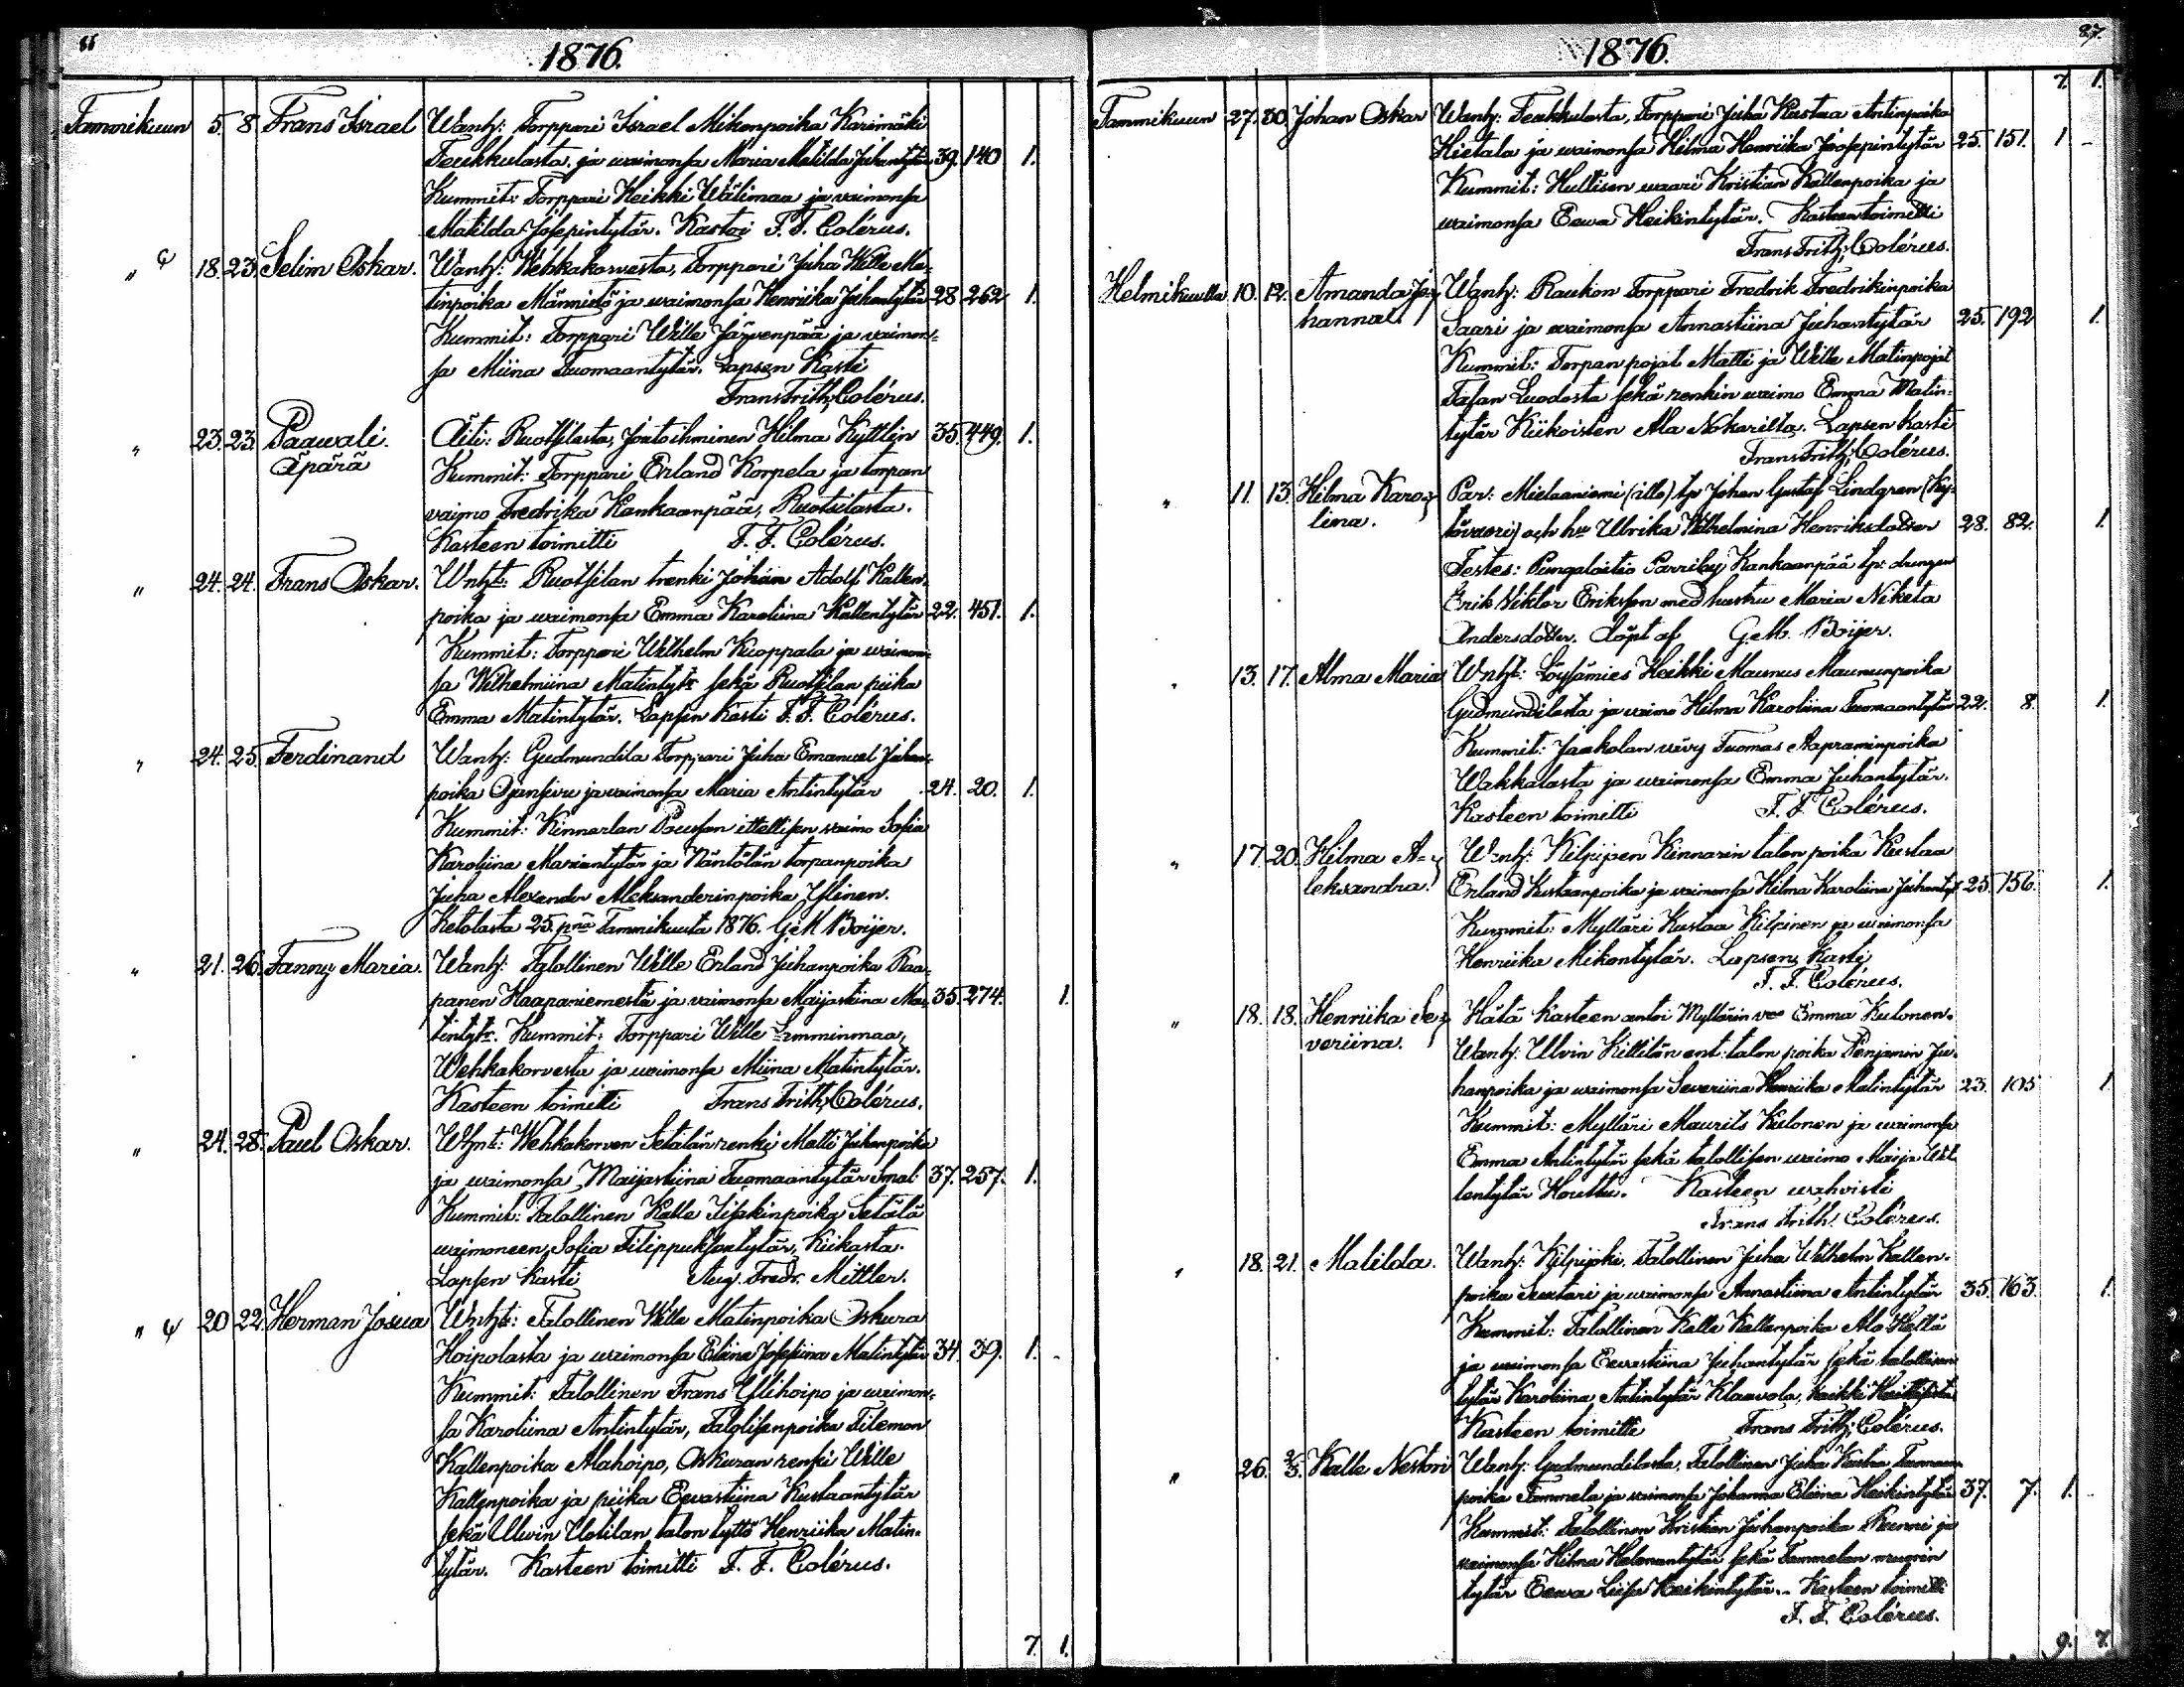 1876.
Tammikuun 5. 8. Frans Israel Wanh: Torppari Israel Mikonpoika Karimäki
Teukkulasta, ja waimonsa Maria Matilda Juhantytär 39. 140 1.
Kummit: Torppari Heikki Wälimaa ja waimonsa
Matilda Josepintytär. Kastoi F. F. Colérus.
" 18. 23. Selim Oskar. Wanh: Wehkakorwesta, Torppari Juha Wille Ma-
tinpoika Männistö ja waimonsa Henriika Juhantytär 28 262 1.
Kummit: Torppari Wille Järvenpää ja vaimon-
sa Miina Tuomaantytär. Lapsen Kasti
Frans Frith. Colérus.
" 23. 23. Paawali. Äiti: Ruotsilasta, Joutoihminen Hilma Kyttlin 35. 449. 1.
Äpärä Kummit: Torppari Erland Korpela ja torpan
vaimo Fredrika Kankaanpää, Ruotsilasta.
Kasteen toimitti F. F. Colérus.
" 24. 24. Frans Oskar. Wnht: Ruotsilan trenki Johan Adolf Kallen-
poika ja waimonsa Emma Karoliina Kallentytär 22. 451. 1.
Kummit: Torppari Wilhelm Kuoppala ja waimon-
sa Wilhelmiina Matintytr sekä Ruotsilan piika
Emma Matintytär. Lapsen Kasti F. F. Colérus.
" 24. 25. Ferdinand Wanh: Gudmundila Torppari Juha Emanuel Juhan-
poika Ojansivu ja waimonsa Maria Antintytär 24. 20. 1.
Kummit: Kinnarlan itellisen waimo Sofia
Karoliina Mariantytär ja Näntölän torpanpoika
Juha Alexander Aleksanderinpoika Ylinen.
Ketolasta 25. pnä Tammikuuta 1876. G. M. Boijer.
" 21. 26. Fanny Maria. Wanh: Talollinen Wille Erland Juhanpoika Raa-
panen Haapaniemestä ja waimonsa Maijastiina Ma- 35. 274. 1.
tintytr. Kummit: Torppari Wille Lamminmaa,
Wehkakorvesta ja waimonsa Miina Matintytär.
Kasteen toimitti Frans Frith. Colérus.
" 24. 28. Paul Oskar. Whnt: Wehkakorven Setälän renki Matti Juhanpoika
ja waimonsa Maijastiina Tuomaantytär Smal 37. 257. 1.
Kummit: Talollinen Kalle Iisakinpoika Setälä
waimoneen, Sofia Filippuksentytär, Kiikasta.
Lapsen Kasti Aug. Fredr. Mittler.
" 20 22. Herman Josua Wnht: Talollinen Wille Matinpoika Oskura
Hoipolasta ja waimonsa Eliina Josefiina Matintytär 34. 39. 1.
Kummit: Talollinen Frans Ylihoipo ja waimon-
sa Karoliina Antintytär, Talolisenpoika Filemon
Kallenpoika Alahoipo, Oskuran renki Wille
Kallenpoika ja piika Eevastiina Kustaantytär
sekä Ulwin Uotilan talon tyttö Henriika Matin-
tytär. Kasteen toimitti F. F. Colérus.
7. 1.
1876. 87.
7. 1.
Tammikuun 27. 30. Johan Oskar Wanh: Teukkulasta, Torppari Juha Kustaa Antinpoika
Hietala ja waimonsa Hilma Henriika Joosepintytär 25. 151. 1
Kummit: Hultisen waari Kristian Kallenpoika ja
waimonsa Eewa Heikintytär. Kasteen toimitti
Frans Frith. Colérus.
Helmikuulla 10. 12. Amanda Jo- Wanh: Raukon Torppari Fredrik Fredrikinpoika
hanna. Saari ja waimonsa Annastiina Juhantytär 25. 192 1.
Kummit: Torpan pojat Matti ja Wille Matinpojat
Luodosta sekä renkin waimo Emma Matin-
tytär Kiikoisten Ala Nokarilta. Lapsen Kasti
Frans Frith. Colérus.
" 11. 13. Hilma Karo- Par: Mielaaniemi (illo) tp Johan Gustaf Lindgren (Ky-
lina. och hu Ulrika Wilhelmina Henriksdotter 28. 82. 1.
Testes: Pungalaitio Parriby Kankaanpää tp: drengen
Erik Viktor Eriksson med hustru Maria Niketa
Andersdotter. Döpt af G. M. Boijer.
" 13. 17. Alma Maria Wnht: Löysämies Heikki Maunus Maununpoika
Gudmundilasta ja waimo Hilma Karoliina Tuomaantytär 22. 8. 1.
Kummit: Jaakolan vävy Tuomas Aapraminpoika
Wahkalasta ja waimonsa Emma Juhantytär.
Kasteen toimitti F. F. Colérus.
" 17. 20. Hilma A- Wanh: Kilpijoen Kinnarin talon poika Kustaa
leksandra. Erland Kustaanpoika ja waimonsa Hilma Karoliina Juhantyt 25. 156. 1.
Kummit: Mylläri Kustaa Kilpinen ja waimonsa
Henriika Mikontytär. Lapsen Kasti
F. F. Colérus.
" 18. 18. Henriika Se- Hätä kasteen antoi Myllärin vmo Emma Kulonen.
veriina. Wanh: Ulvin Killilän ent: talon poika Penjamin Ju-
hanpoika ja waimonsa Severiina Henriika Matintytär 23. 105 1
Kummit: Mylläri Maurits Kulonen ja waimonsa
Emma Antintytär sekä talollisen waimo Maija Wil-
lentytär Houttu. Kasteen wahvisti
Frans Frith. Colérus.
" 18. 21. Matilda. Wanh: Kilpijoki, Talollinen Juha Wilhelm Kallen-
poika ja waimonsa Annastiina Antintytär 35. 163. 1.
Kummit: Talollinen Kalle Kallenpoika Ala Hellä
ja waimonsa Eevastiina Juhantytär sekä talollisen
tytär Karoliina Antintytär Klaavola, kaikki
Kasteen toimitti Frans Frith. Colérus.
" 26. 2/3. Kalle Nestori Wanh: Gudmundilasta, Talollinen Juha Kustaa Tuomaan
poika Tammela ja waimonsa Johanna Eliina Heikintytär 37. 7. 1.
Kummit: Talollinen Kristian Juhanpoika Ruuni ja
waimonsa Hilma Helenantytär sekä Tammelan muorin
tytär Eewa Liisa Heikintytär. Kasteen toimitti
F. F. Colérus.
9. 7.